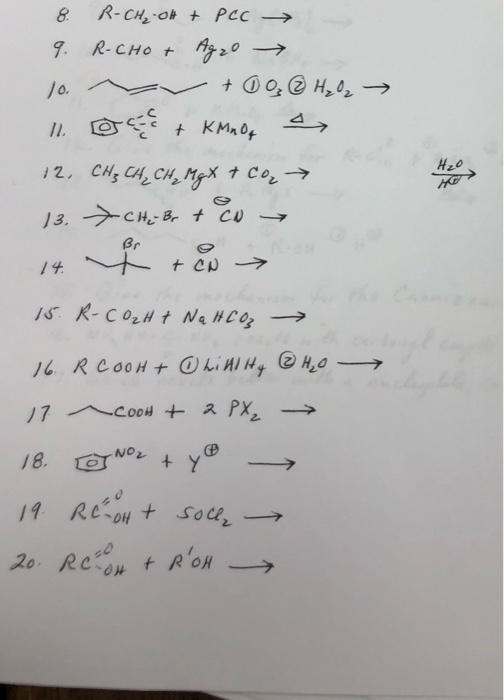 8. R-CH₂-OH + PCC →
9. R-CHO + Ag₂O →
10. + ① O₃ ② H₂O₂ →
11. C C C + KMnO₄ Δ→
12, CH₃CH₂CH₂MgX + CO₂ → H₂O H⊕ →
13. CH₂-Br + ⊖CN →
14. Br + ⊖CN →
15. R-CO₂H + NaHCO₃ →
16. RCOOH + ① LiAlH₄ ② H₂O →
17 COOH + 2 PX₂ →
18. NO₂ + Y⊕ →
19. RC=O-OH + SOCl₂ →
20. RC=O-OH + R'OH →